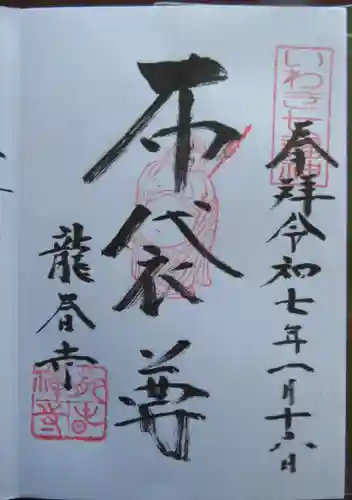 いわき七福神
奉拝令和七年一月十六日
布袋尊
龍春寺